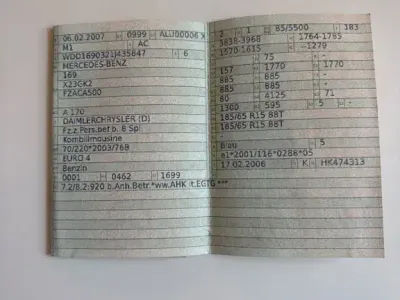 06.02.2007 0999 ALJ00006 X
M1 AC
WDD1690321J435847 6
MERCEDES-BENZ
169
X23GK2
FZACA500
A 170
DAIMLERCHRYSLER (D)
Fz.z.Pers.bef.b. 8 Spl.
Kombilimousine
70/220*2003/76B
EURO 4
Benzin
0001 0462 1699
7.2/8.2:920 b.Anh.Betr.*ww.AHK lt.EGTG ***
2 1 85/5500 183
3838-3968 1764-1785
1570-1615 -1279
75 -
157 1770 1770
885 885 -
885 885 -
80 4125 71
1300 595 5 -
185/65 R15 88T
185/65 R15 88T
-
Blau 5
e1*2001/116*0288*05
17.02.2006 K HK474313